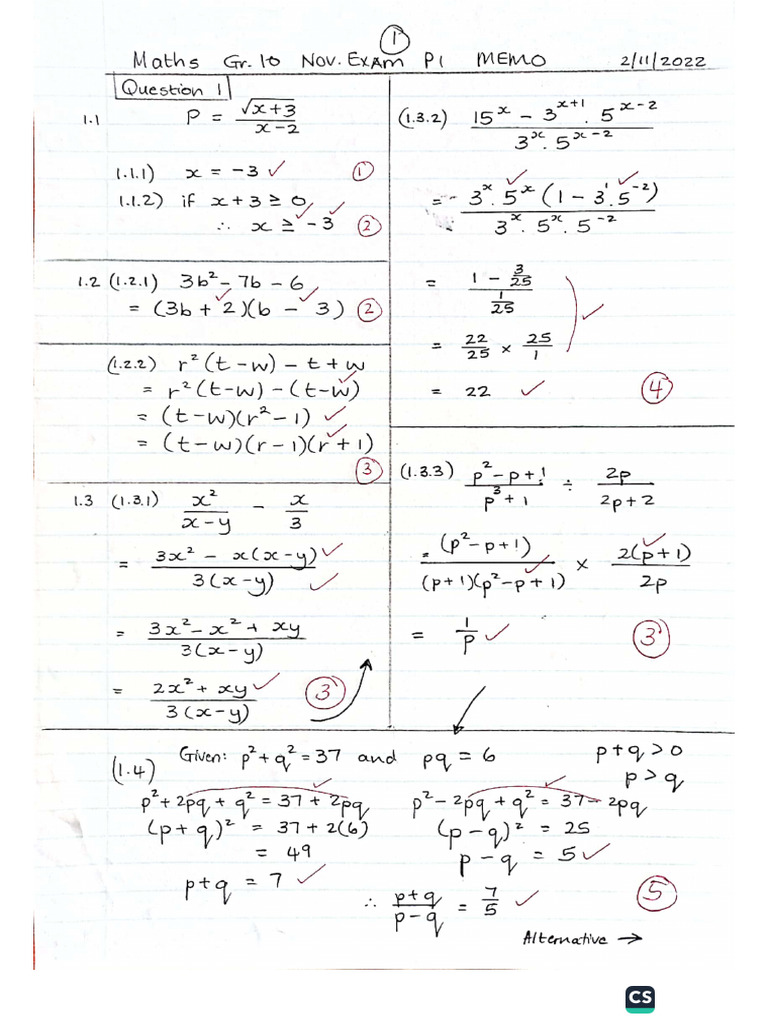 ①
Maths Gr. 10 Nov. Exam P1 MEMO 2/11/2022
Question 1
1.1 P = √(x+3) / (x-2)
1.1.1) x = -3 ✓ ①
1.1.2) if x + 3 ≥ 0
∴ x ≥ ✓ -3 ✓ ②
1.2 (1.2.1) 3b² - 7b - 6
= (3b + 2)(b - 3) ②
(1.2.2) r²(t-w) - t + w
= r²(t-w) - (t-w) ✓
= (t-w)(r²-1) ✓
= (t-w)(r-1)(r+1) ✓
③
1.3 (1.3.1) x²/(x-y) - x/3
= (3x² - x(x-y))/(3(x-y)) ✓ ✓
= (3x² - x² + xy)/(3(x-y))
= (2x² + xy)/(3(x-y)) ✓ ③
(1.3.2) (15^x - 3^(x+1) . 5^(x-2))/(3^x . 5^(x-2))
= (3^x . 5^x (1 - 3^1 . 5^-2))/(3^x . 5^x . 5^-2) ✓ ✓
= (1 - 3/25)/(1/25)
= 22/25 × 25/1 ✓
= 22 ✓ ④
(1.3.3) (p² - p + 1)/(p³ + 1) ÷ 2p/(2p+2)
= (p² - p + 1)/((p+1)(p² - p + 1)) ✓ × 2(p+1)/2p ✓
= 1/p ✓ ③
(1.4) Given: p² + q² = 37 and pq = 6 p + q > 0
p > q
p² + 2pq + q² = 37 + 2pq ✓ p² - 2pq + q² = 37 - 2pq ✓
(p + q)² = 37 + 2(6) (p - q)² = 25
= 49 p - q = 5 ✓
p + q = 7 ✓ ∴ (p+q)/(p-q) = 7/5 ✓ ⑤
Alternative →
CS